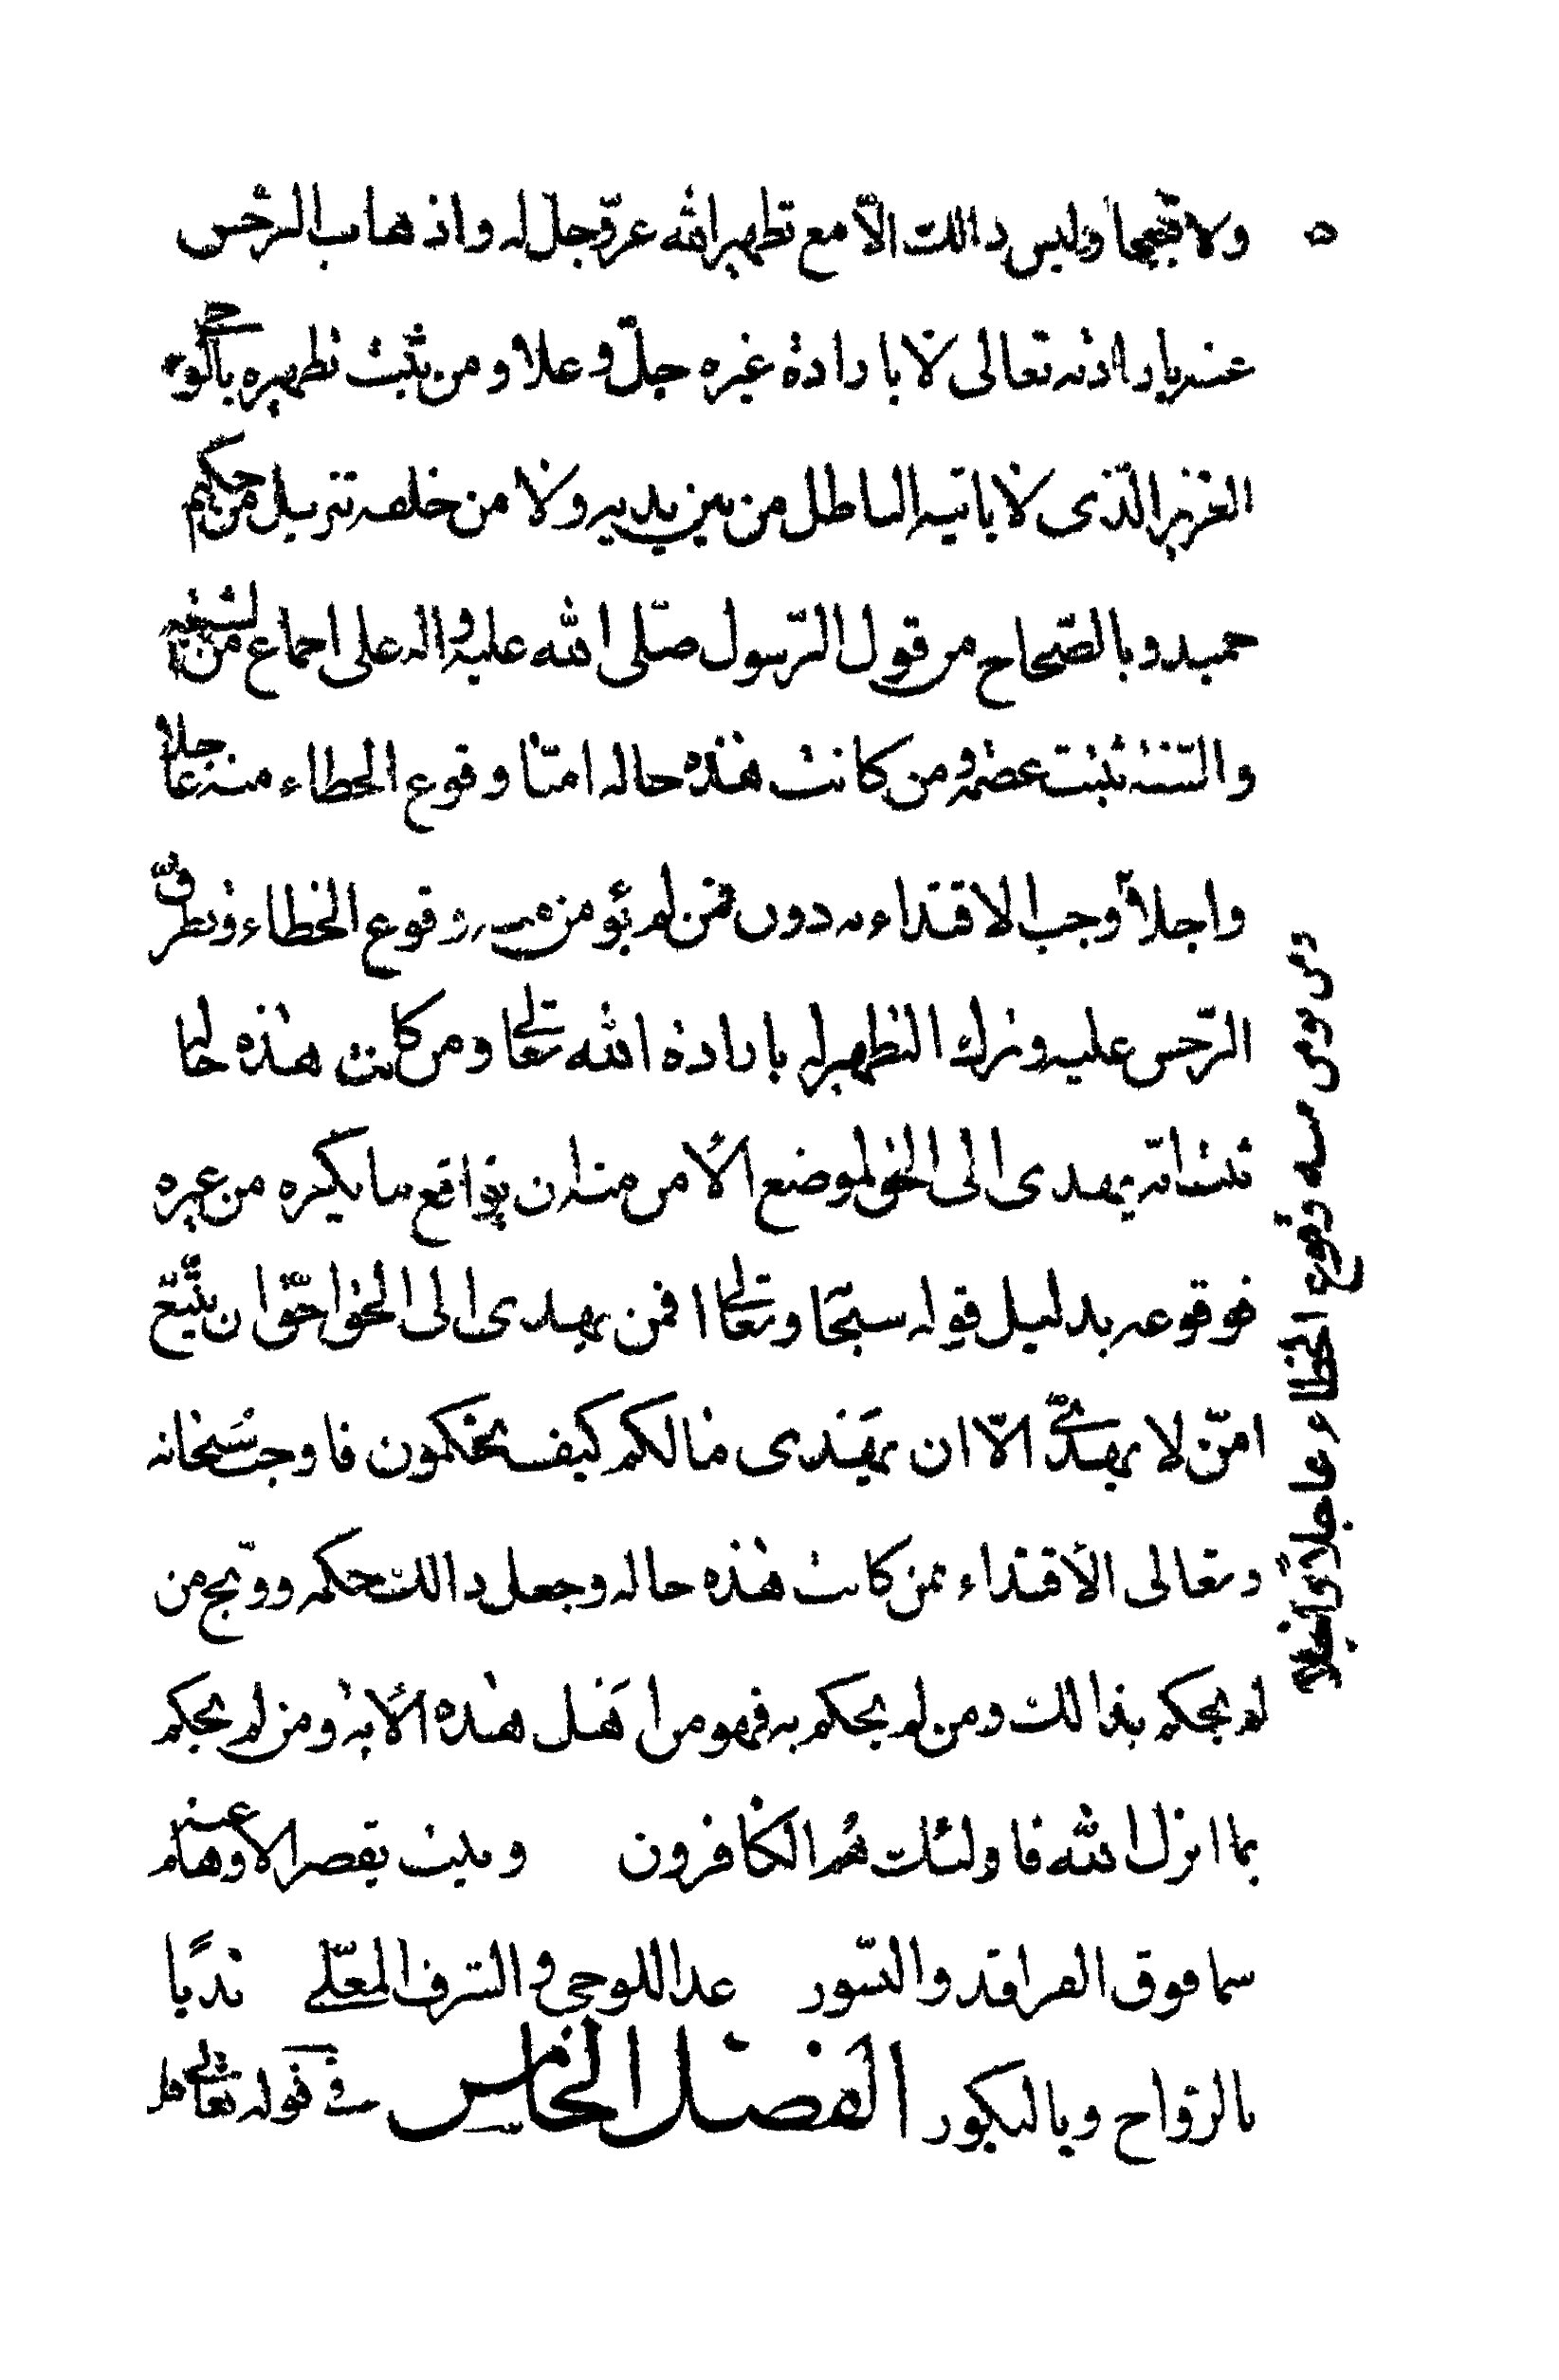 ولا قبيحا وليس ذالك الّا مع تطهير الله عزّوجلّ له واذهاب الرّجس
عنه بارادته تعالى لا بارادة غيره جلّ وعلا ومن يثبت تطهيره بالكتاب
العزيز الّذى لا ياتيه الباطل من بين يديه ولا من خلفه تنزيل من حكيم
حميد وبالصّحاح من قول الرّسول صلّى الله عليه واله على اجماع من الشيعة
والسّنة ثبت عصمة ومن كانت هذه حاله امنّا وقوع الخطاء منه عاجلا
واجلا وجب الاقتداء به دون فمن لم يؤمن منه وقوع الخطاء وتطرّق
الرّجس عليه وترك التطهير له بارادة الله تعالى ومن كانت هذه حاله
ثبت انّه يهدى الى الحق لموضع الأمن منه ان يواقع ما ينكره من غيره
فوقوعه بدليل قوله سبحانه وتعالى افمن يهدى الى الحق احقّ ان يتّبع
امّن لا يهدّى الّا ان يهدى فما لكم كيف تحكمون فاوجب سبحانه
وتعالى الأقتداء بمن كانت هذه حاله وجعل ذالك حكمه ووبخ من
لم يحكم بذالك ومن لم يحكم به فهو من اهل هذه الأية ومن لم يحكم
بما انزل الله فاولئك هم الكافرون وبيت يقصر الاوهام عنه
سما فوق الفراقد والنسور غدا للوحى والشرف المعلّى نديًا
بالرّواح وبالبكور الفصل الخامس فى قوله تعالى
من يومن منه وقوع الخطاء عاجلاً واجلا